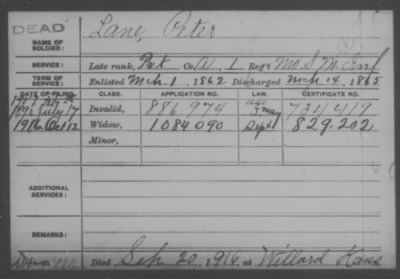 DEAD
Lane, Peter
NAME OF SOLDIER:
SERVICE: Late rank, Pvt Co. 1 Reg't Mo. S. M. Inf
TERM OF SERVICE: Enlisted Mch. 1, 1862 Discharged Mch. 14, 1865
DATE OF FILING. CLASS. APPLICATION NO. LAW. CERTIFICATE NO.
July 17 Invalid, 886.974 age May 734419
1916 Oct 12 Widow, 1084090 Sept 829.202
Minor,
ADDITIONAL SERVICES:
REMARKS:
Died Sep. 20, 1916 at Willard Kans